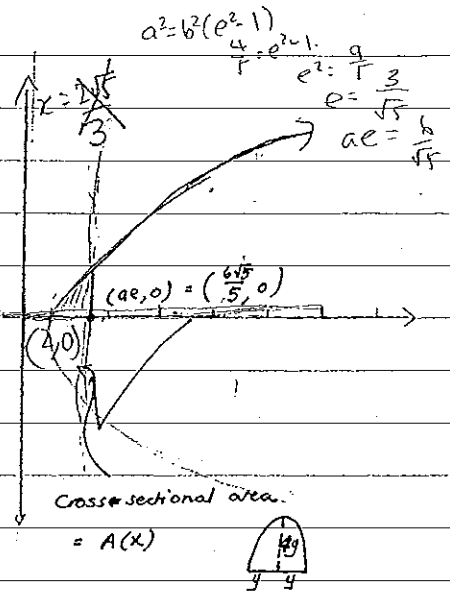 a² = b²(e² - 1)
4/5 = e² - 1.
e² = 9/5
e = 3/√5
ae = 6/√5
x = 2√5/3
(ae, 0) = (6√5/5, 0)
(2, 0)
Cross-sectional area.
= A(x)
4y
y y